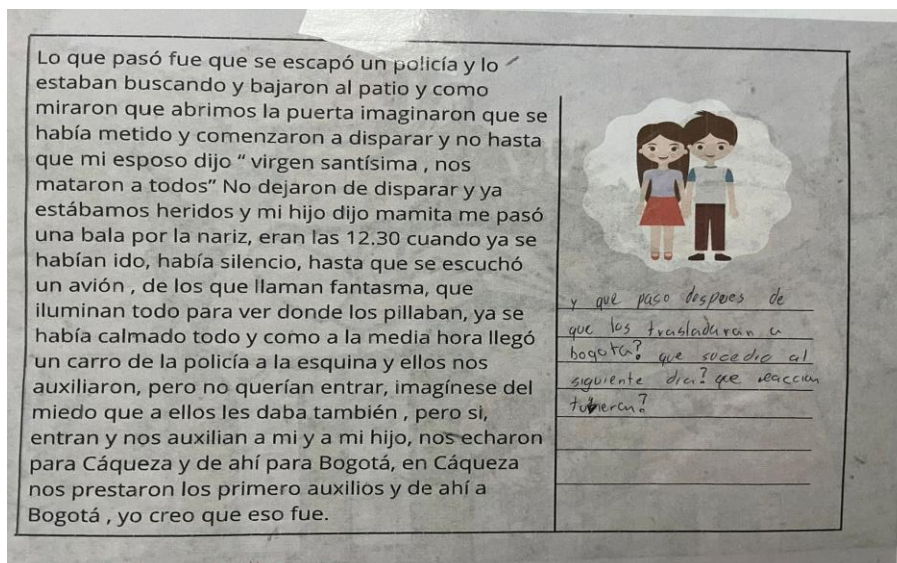 Lo que pasó fue que se escapó un policía y lo
estaban buscando y bajaron al patio y como
miraron que abrimos la puerta imaginaron que se
había metido y comenzaron a disparar y no hasta
que mi esposo dijo “ virgen santísima , nos
mataron a todos” No dejaron de disparar y ya
estábamos heridos y mi hijo dijo mamita me pasó
una bala por la nariz, eran las 12.30 cuando ya se
habían ido, había silencio, hasta que se escuchó
un avión , de los que llaman fantasma, que
iluminan todo para ver donde los pillaban, ya se
había calmado todo y como a la media hora llegó
un carro de la policía a la esquina y ellos nos
auxiliaron, pero no querían entrar, imagínese del
miedo que a ellos les daba también , pero si,
entran y nos auxilian a mi y a mi hijo, nos echaron
para Cáqueza y de ahí para Bogotá, en Cáqueza
nos prestaron los primero auxilios y de ahí a
Bogotá , yo creo que eso fue.
y que paso despues de
que los trasladaran a
bogota? que sucedio al
siguiente dia? que reaccion
tubieran?